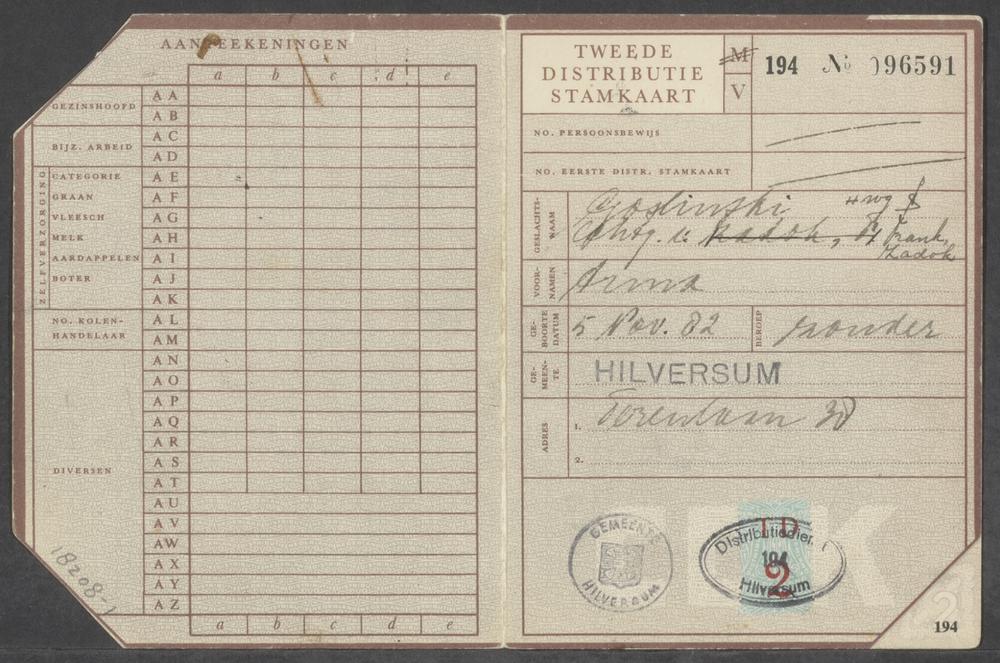 AANTEEKENINGEN
a b c d e
GEZINSHOOFD
AA
AB
BIJZ. ARBEID
AC
AD
ZELFVERZORGING
CATEGORIE AE
GRAAN AF
VLEESCH AG
MELK AH
AARDAPPELEN AI
BOTER AJ
AK
NO. KOLEN-
HANDELAAR
AL
AM
AN
AO
AP
AQ
AR
AS
DIVERSEN
AT
AU
AV
AW
AX
AY
AZ
a b c d e
18208-1
TWEEDE
DISTRIBUTIE
STAMKAART
M
V
194 No 096591
NO. PERSOONSBEWIJS
NO. EERSTE DISTR. STAMKAART
GESLACHTS-
NAAM
Goslinski
Frank,
Zadok
VOOR-
NAMEN
GE-
BOORTE
DATUM
5 Nov. 82
BEROEP
zonder
GE-
MEEN-
TE
HILVERSUM
ADRES
1. Torenlaan
2.
GEMEENTE
HILVERSUM
TD
2
Distributiedienst
194
Hilversum
194